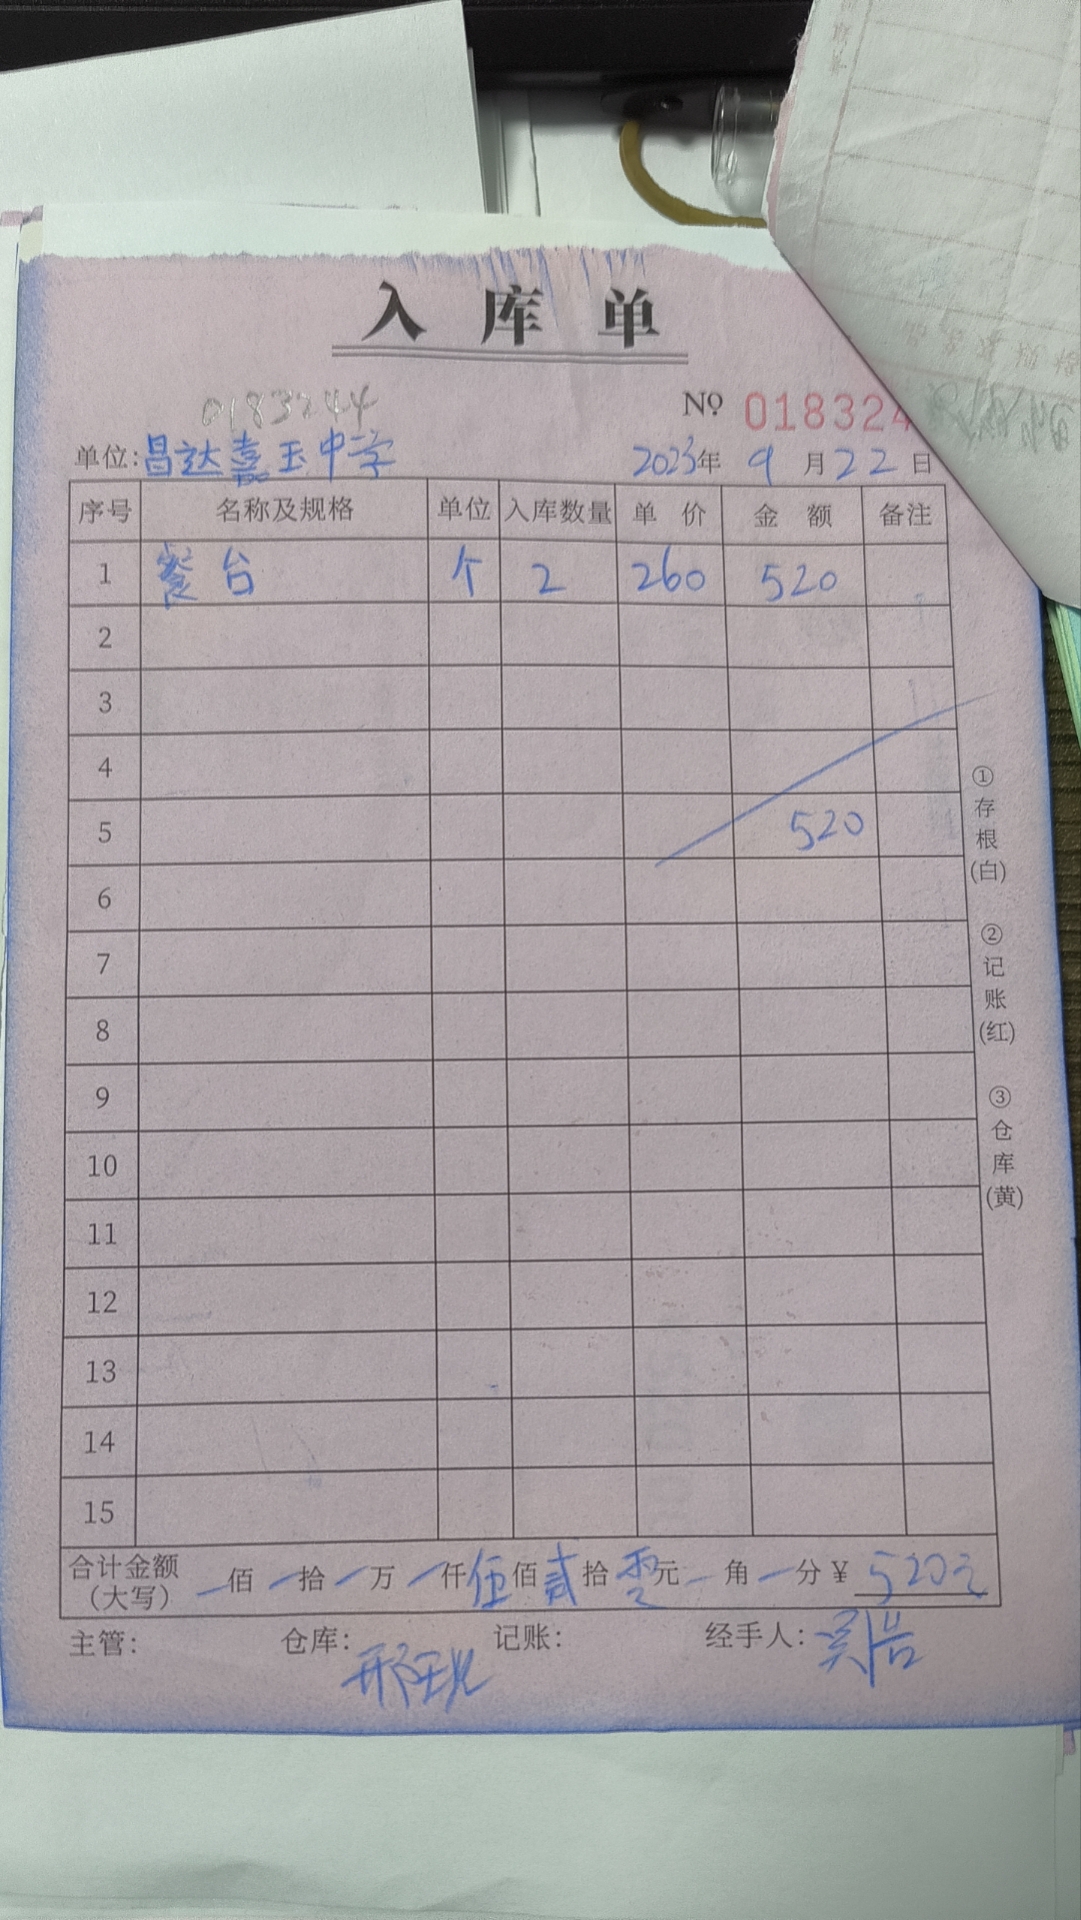 入库单
0183244
№ 018324
单位:昌达嘉玉中学 2023年9月22日
序号 名称及规格 单位 入库数量 单价 金额 备注
1 餐台 个 2 260 520
2
3
4
5 520
6
7
8
9
10
11
12
13
14
15
①存根(白)
②记账(红)
③仓库(黄)
合计金额(大写) 佰 拾 万 仟 伍佰 贰拾 零元 角 分 ¥ 520元
主管: 仓库: 记账: 经手人: